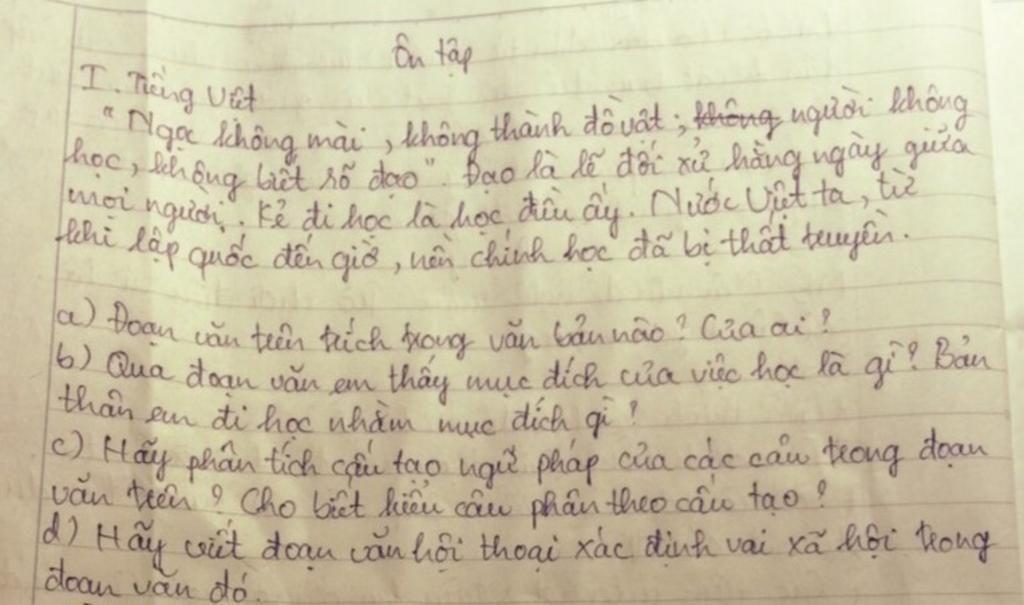 Ôn tập
I. Tiếng Việt
"Ngọc không mài, không thành đồ vật; không người không
học, không biết rõ đạo". Đạo là lẽ đối xử hằng ngày giữa
mọi người. Kẻ đi học là học điều ấy. Nước Việt ta, từ
khi lập quốc đến giờ, nền chính học đã bị thất truyền.
a) Đoạn văn trên trích trong văn bản nào? Của ai?
b) Qua đoạn văn em thấy mục đích của việc học là gì? Bản
thân em đi học nhằm mục đích gì?
c) Hãy phân tích cấu tạo ngữ pháp của các câu trong đoạn
văn trên? Cho biết kiểu câu phân theo cấu tạo?
d) Hãy viết đoạn văn hội thoại xác định vai xã hội trong
đoạn văn đó.